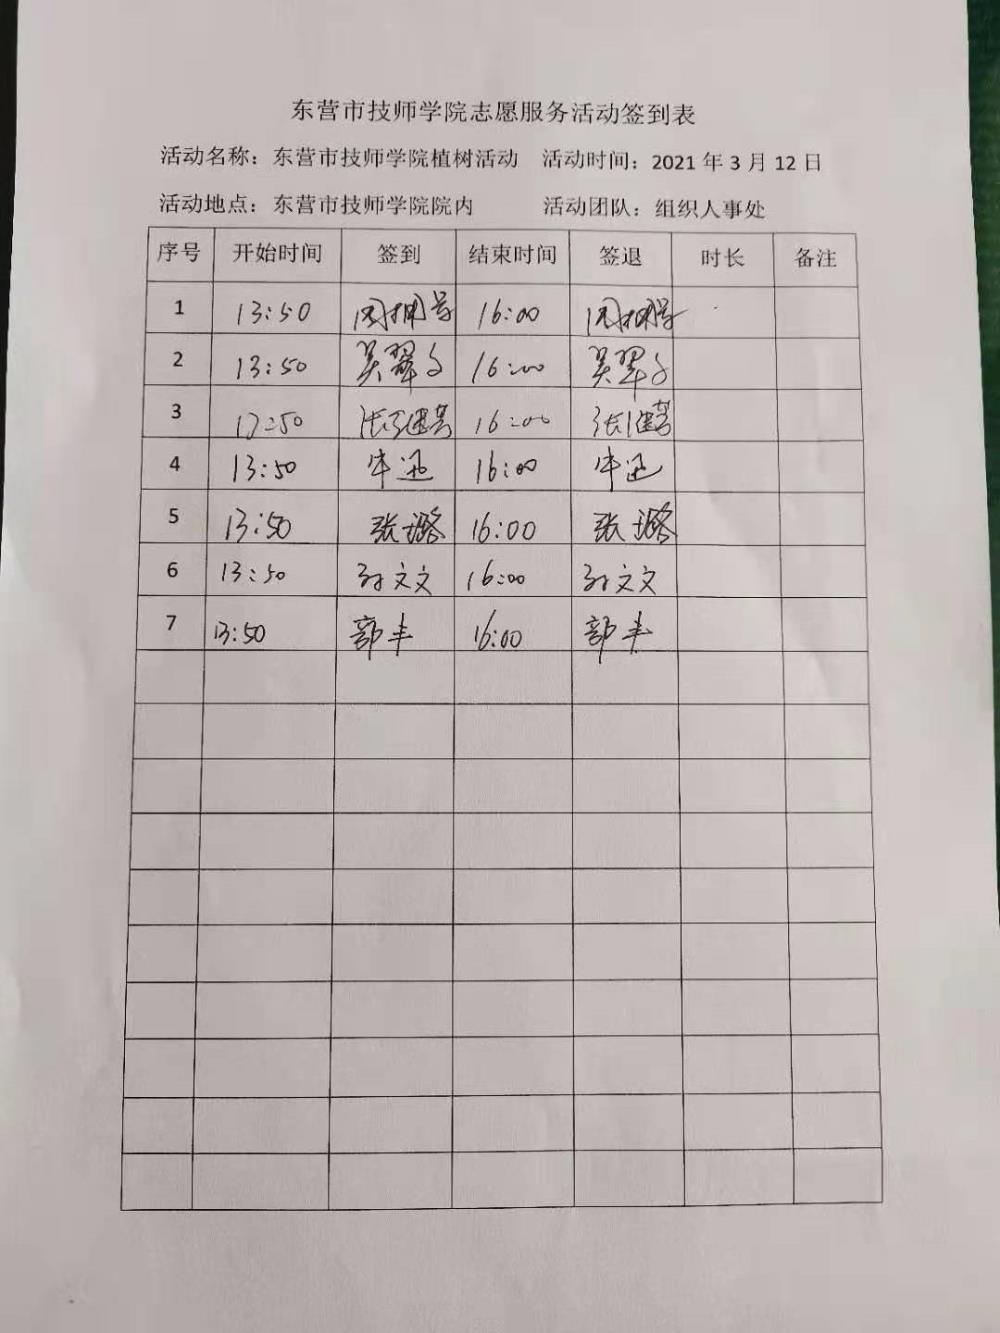 东营市技师学院志愿服务活动签到表
活动名称：东营市技师学院植树活动 活动时间：2021 年 3 月 12 日
活动地点：东营市技师学院院内 活动团队：组织人事处
序号 开始时间 签到 结束时间 签退 时长 备注
1 13:50 16:00
2 13:50 吴翠 16:00 吴翠
3 13:50 16:00
4 13:50 牛迅 16:00 牛迅
5 13:50 张璐 16:00 张璐
6 13:50 孙文文 16:00 孙文文
7 13:50 郭丰 16:00 郭丰